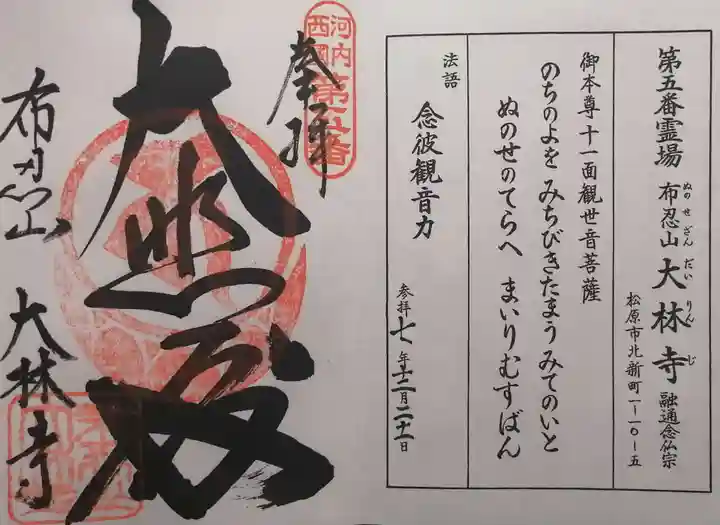 第五番霊場 布忍山 大林寺 融通念仏宗
ぬのせざん だいりんじ
松原市北新町一ー一〇ー五
御本尊 十一面観世音菩薩
のちのよを みちびきたまう みてのいと
ぬのせのてらへ まいりむすばん
法語 念彼観音力
参拝 七年十二月二十一日
河内
西國
第五番
奉拝
大悲殿
布忍山 大林寺